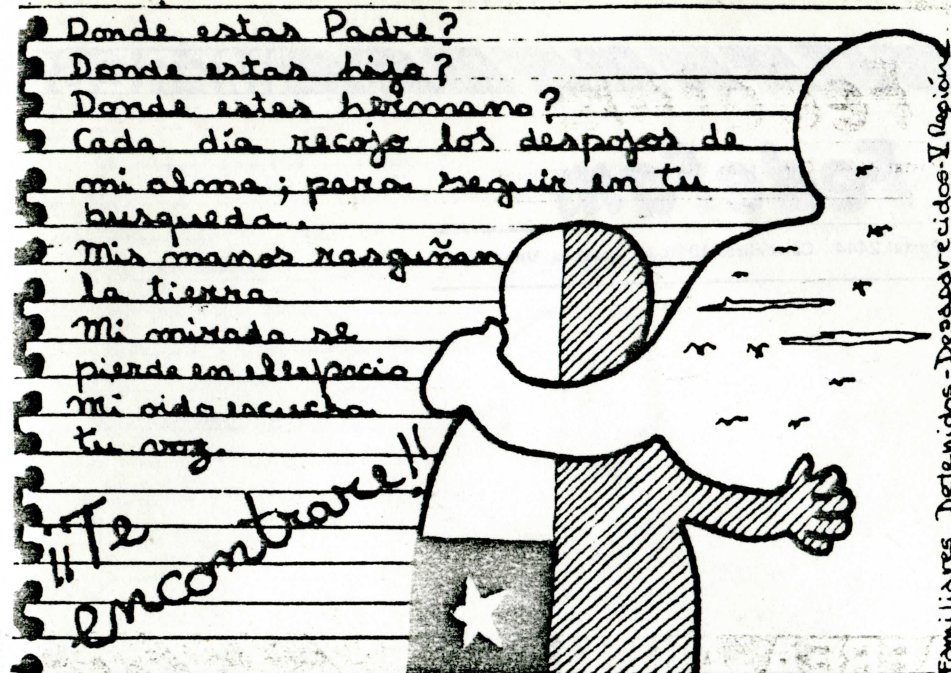 Donde estas Padre?
Donde estas hijo?
Donde estas hermano?
Cada día recojo los despojos de
mi alma; para seguir en tu
busqueda.
Mis manos rasguñan
la tierra
Mi mirada se
pierde en el espacio
Mi oido escucha
tu voz.
¡¡Te
encontrare!!
Familiares Detenidos-Desaparecidos-V Región